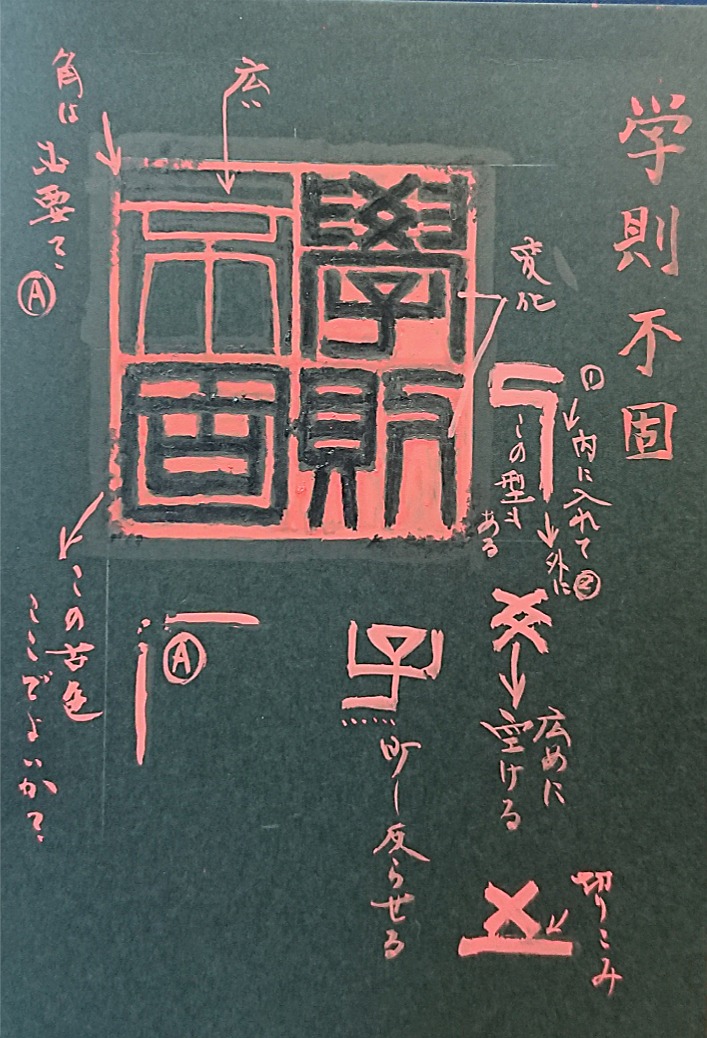 学則不固
広い
角は
必要?
Ⓐ
學則
不固
変化
①
内に入れて
外に②
この型も
ある
広めに
空ける
切りこみ
少し反らせる
Ⓐ
この
ここでよいか?